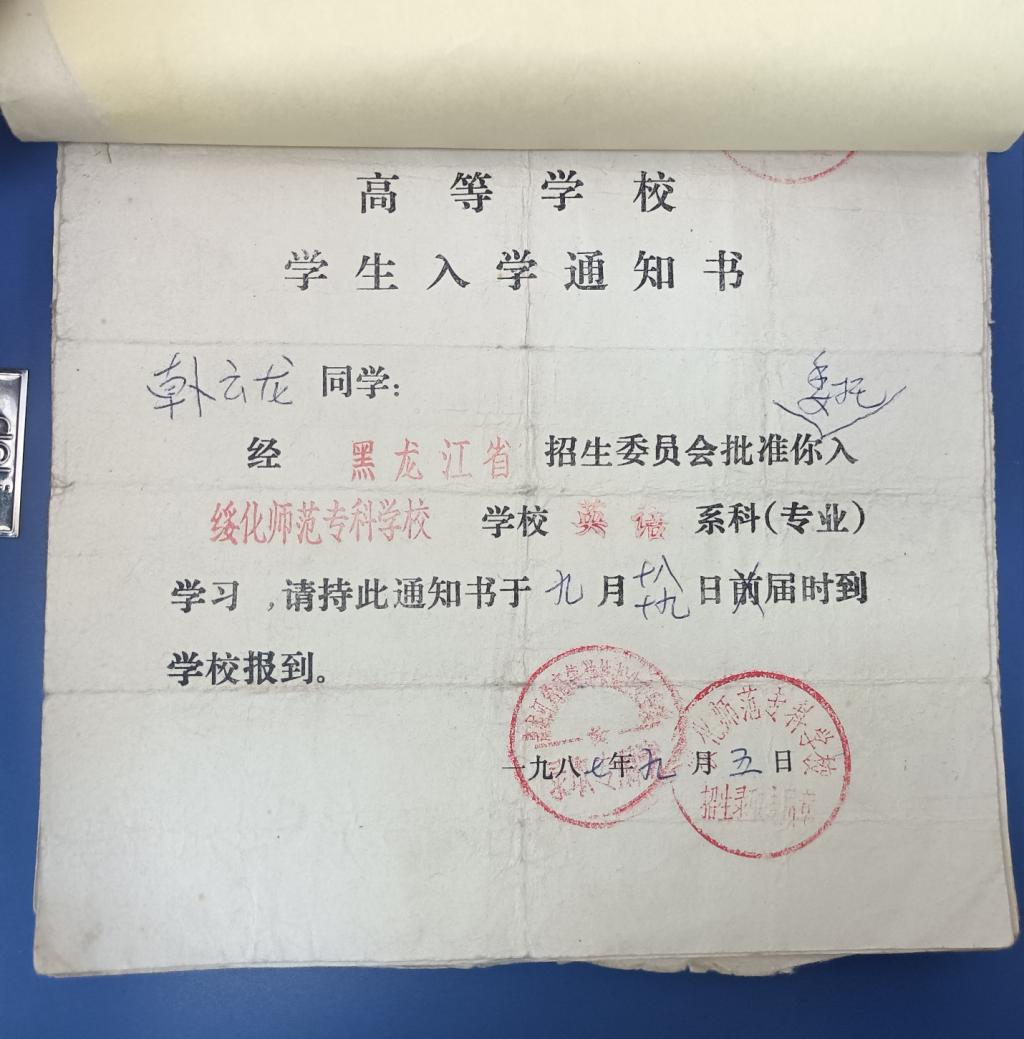 高等学校
学生入学通知书
韩云龙 同学：
委托
经 黑龙江省 招生委员会批准你入
绥化师范专科学校 学校 英语 系科（专业）
学习，请持此通知书于九月十八十九日前届时到
学校报到。
一九八七年九月五日
化师范专科学校
招生录取专用章